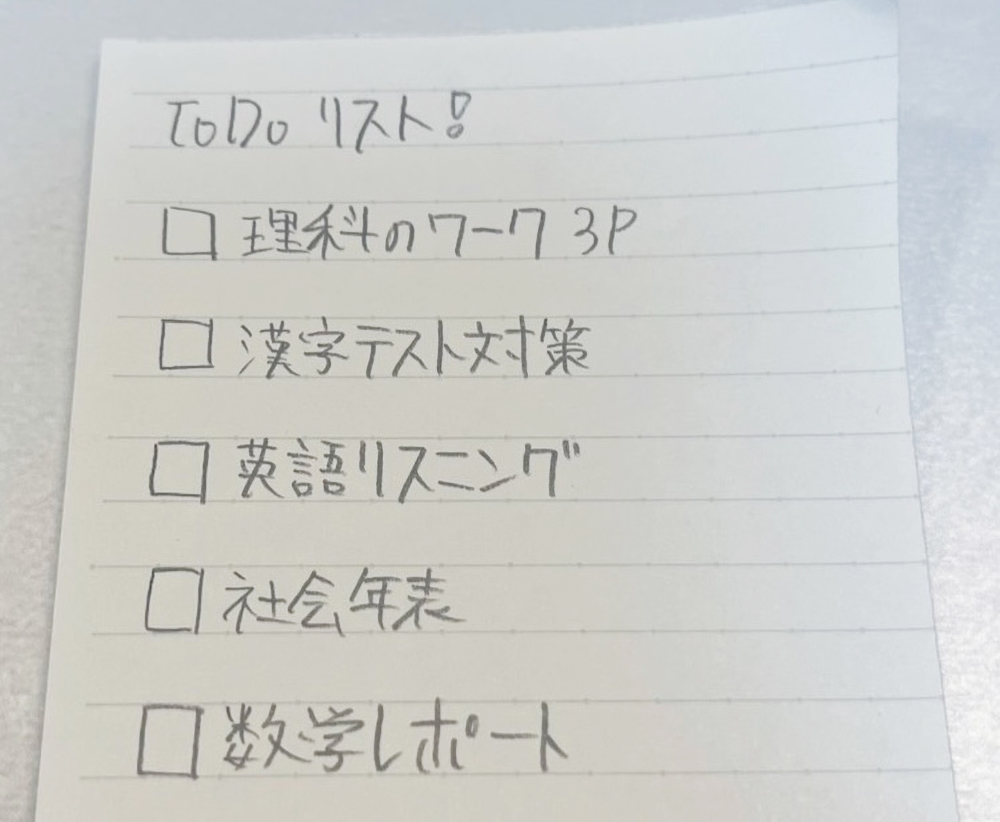 ToDoリスト!
□ 理科のワーク 3P
□ 漢字テスト対策
□ 英語リスニング
□ 社会年表
□ 数学レポート